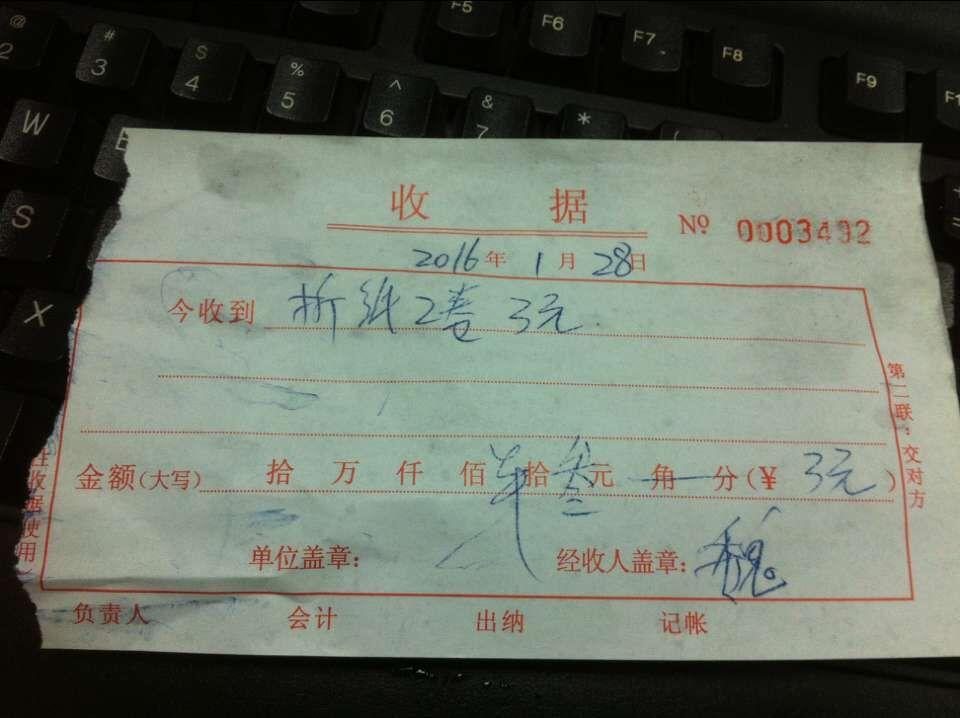 F5 F6 F7 F8 F9 F1
@ 2 # 3 $ 4 % 5 ^ 6 & 7 * (
W E
S
X
收 据 № 0003492
2016年1月28日
今收到 折纸2卷 3元.
金额(大写) 拾 万 仟 佰 拾 叁 元 角 分(¥ 3元)
单位盖章: 经收人盖章:
负责人 会计 出纳 记帐
第二联:交对方
收据使用